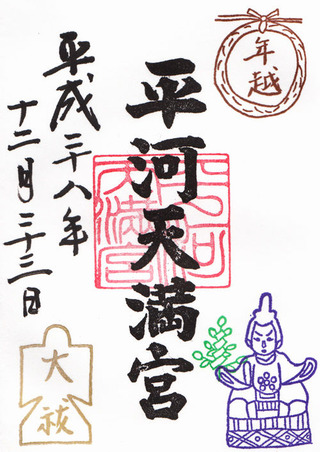 年越
平河天満宮
平河天満宮
平成二十八年
十二月二十三日
大祓